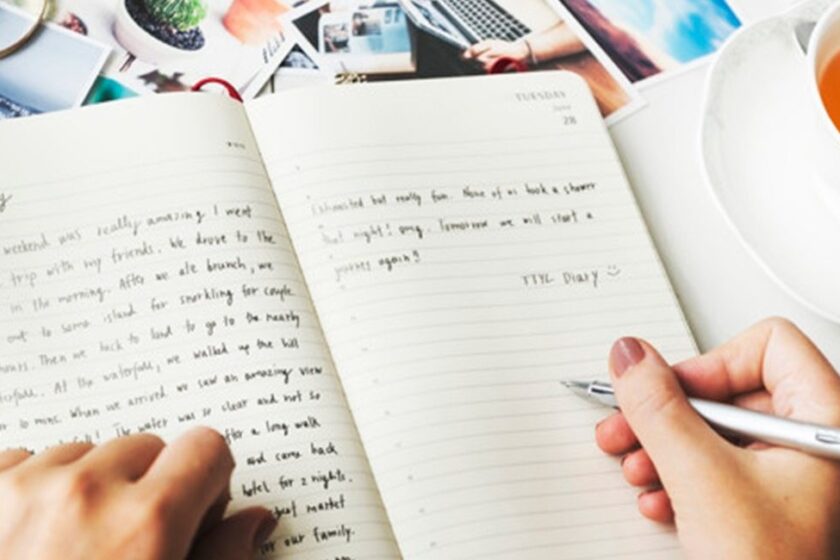 weekend was really amazing. I went
trip with my friends. We drove to the
in the morning. After we ate brunch, we
out to some island for snorkling for couple
hours. Then we back to land to go to the nearby
waterfall. At the waterfall, we walked up the hill
10 mins. When we arrived we saw an amazing view
waterfall! The water was so clear and not so
after a long walk
and came back
hotel for 2 nights.
market
for our family.
TUESDAY
June
28
Exhausted but really fun. None of us took a shower
that night! omg. Tomorrow we will start a
journey again!
TTYL Diary